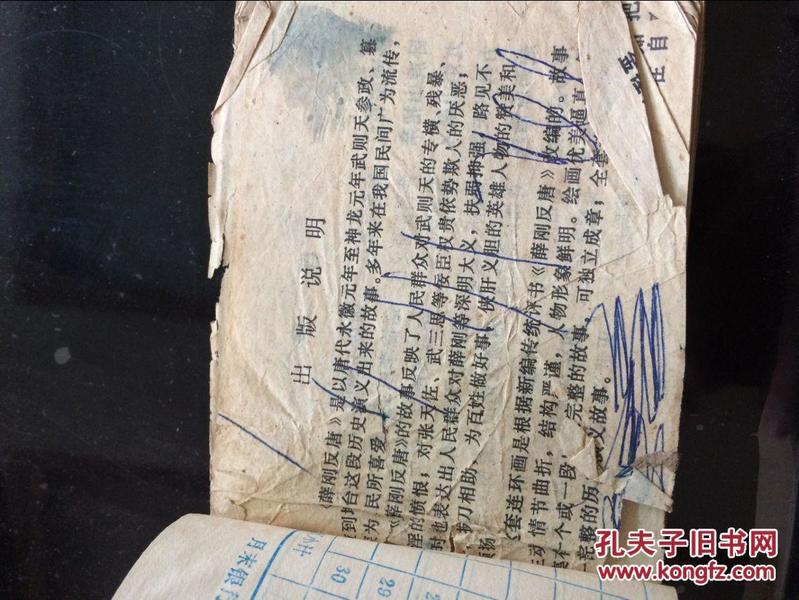 出版说明
《薛刚反唐》是以唐代永徽元年至神龙元年武则天参政、篡
到 台这段历史演义出来的故事。多年来在我国民间广为流传,
为 民所喜爱
《薛刚反唐》的故事反映了人民群众对武则天的专横、残暴、
淫的愤恨;对张天佐、武三思等 臣权贵依势欺人的厌恶;
时也表达出人民群众对薛刚等深明大义,扶弱抑强,路见不
拔刀相助,为百姓做好事,侠肝义胆的英雄人物的赞美和
颂扬
套连环画是根据新编传统评书《薛刚反唐》改编的。故事
生动 情节曲折,结构严谨,人物形象鲜明。绘画优美逼真
个或一段, 完整的故事,可独立成章;全套
完整的历 义故事。
把
在自
月末银行
30
29
孔夫子旧书网
www.kongfz.com